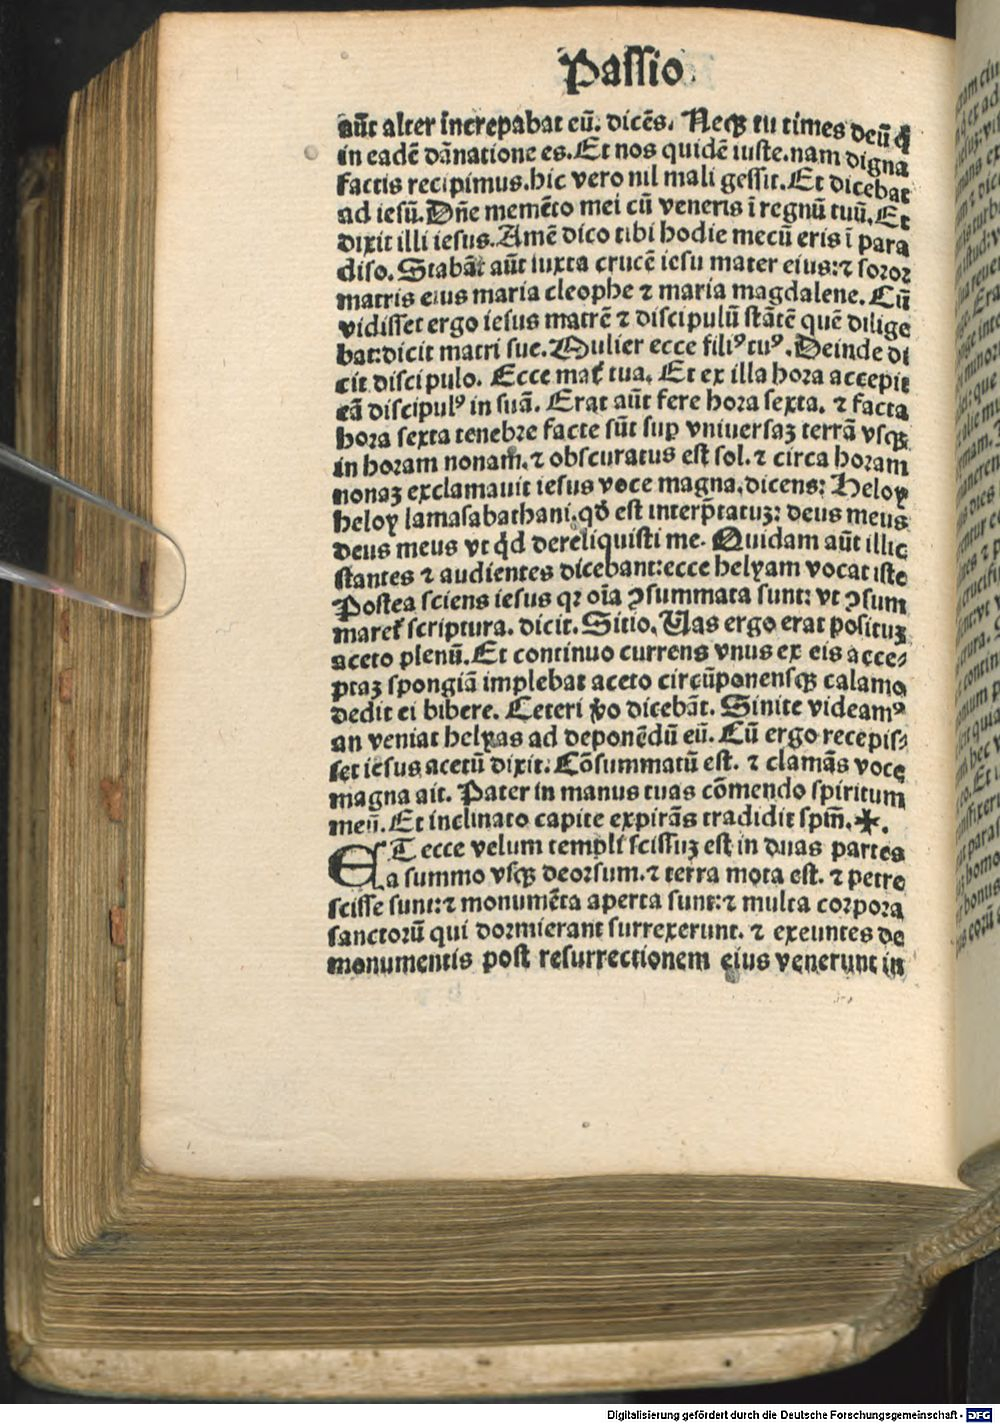 Passio
aūt alter increpabat eū. dicēs. Neqꝫ tu times deū q̇
in eadē dānatione es. Et nos quidē iuste. nam digna
factis recipimus. hic vero nil mali gessit. Et dicebat
ad iesū. Dn̄e memēto mei cū veneris ī regnū tuū. Et
dixit illi iesus. Amē dico tibi hodie mecū eris ī para
diso. Stabāt aūt iuxta crucē iesu mater eius: ⁊ soror
matris eius maria cleophe ⁊ maria magdalene. Cū
vidisset ergo iesus matrē ⁊ discipulū stātē quē dilige
bat: dicit matri sue. Mulier ecce filiꝰ tuꝰ. Deinde di
cit discipulo. Ecce mat᷑ tua. Et ex illa hora accepit
eā discipulꝰ in suā. Erat aūt fere hora sexta. ⁊ facta
hora sexta tenebre facte sūt suꝑ vniuersaꝫ terrā vsqꝫ
in horam nonam. ⁊ obscuratus est sol. ⁊ circa horam
nonaꝫ exclamauit iesus voce magna. dicens: Heloy
heloy lamasabathani. qḋ est interp̄tatuꝫ: deus meus
deus meus vt qͥd dereliquisti me. Quidam aūt illic
stantes ⁊ audientes dicebant: ecce helyam vocat iste
Postea sciens iesus qꝛ oīa ꝯsummata sunt: vt ꝯsum
maret᷑ scriptura. dicit. Sitio. Uas ergo erat posituꝫ
aceto plenū. Et continuo currens vnus ex eis acce⸗
ptaꝫ spongiā implebat aceto circūponensqꝫ calamo
dedit ei bibere. Ceteri ꝟo dicebāt. Sinite videamꝰ
an veniat helyas ad deponēdū eū. Cū ergo recepis⸗
set iesus acetū dixit. Cōsummatū est. ⁊ clamās voce
magna ait. Pater in manus tuas cōmendo spiritum
meū. Et inclinato capite expirās tradidit spm̄. ✠.
ET ecce velum templi scissuꝫ est in duas partes
a summo vsqꝫ deorsum. ⁊ terra mota est. ⁊ petre
scisse sunt: ⁊ monumēta aperta sunt: ⁊ multa corpora
sanctorū qui dormierant surrexerunt. ⁊ exeuntes de
monumentis post resurrectionem eius venerunt in
Digitalisierung gefördert durch die Deutsche Forschungsgemeinschaft - DFG